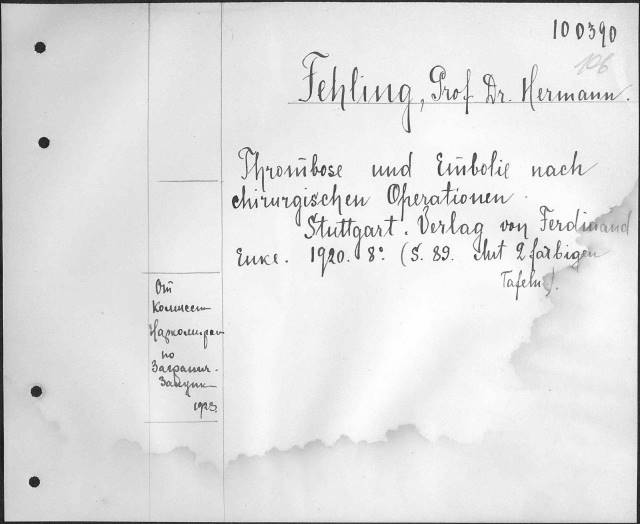 100390
106
Fehling, Prof. Dr. Hermann.
Thrombose und Embolie nach
chirurgischen Operationen.
Stuttgart. Verlag von Ferdinand
Enke. 1920. 8° (S. 89. Mit 2 farbigen
Tafeln).
От
Комиссии
по
Загранич.
Закупк
1923.